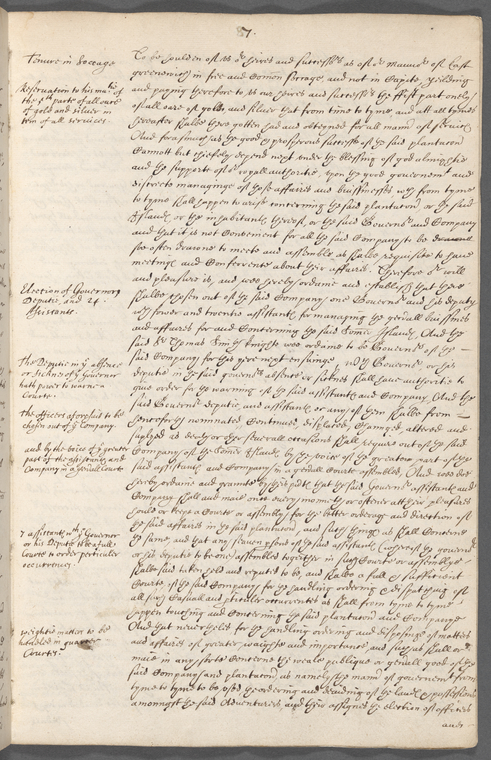 87.
Tenure in Soccage
To be houlden of us or heires and successrs as of or Mannor of East
greenewich in free and Comon Soccage, and not in Capite, yeilding
Reservation to his matie of
the 5th parte of all oare
of gold and silver in
lew of all services.
and paying therefore to us our heires and successrs the fift part onely
of all oare of gold and silver that from time to tyme, and att all tymes
hereafter shalbe there gotten had and obteyned for all manr of service
And forasmuch as the good & prosperous successe of the said plantation
Cannott but chiefely depend next under the blessing of god almightie
and the supporte of or royall authoritie upon the good government and
discrete managinge of those affaires and buissinesses wch from tyme
to tyme shall happen to arise concerning the said plantation or the said
Islands, or the inhabitants thereof, or the said Governor and Company
and that it is not Convenient for all the said Company to be
soe often drawne to meete and assemble as shalbe requisite to have
meetings and Conferrence about their affaires. Therefore or will
and pleasure is, and wee hereby ordaine and establish that there
Election of Governors
Deputie, and 24.
Assistants.
shalbe chosen out of the said Company one Governor and his deputy
and fower and twentie assistants for managing the generall buissines
and affaires for and Concerning the said Somer Islands. And the
said Sr Thomas Smith knight wee ordaine to be Governor of the
said Company for this yeere next ensuinge. wch Governor or his
The Deputie in ye absence
or sicknes of ye Governor
hath power to warne
Courts.
deputie in the said governors absence or sicknes shall have authoritie to
give order for the warning of the said assistants and Company. And the
The officers aforesaid to be
chosen out of ye Company.
said Governor deputie, and assistants or any of them shalbe from
henceforth nominated Continued, displaced, Changed, altered and
supplyed as death or other severall occasions shall require out of the said
and by the voice of ye greater
part of the assistants and
Company in a generall Courte
Company of the Somer Islands by the voice of the greater part of the
said assistants and Company in a generall Courte assembled, And wee doe
hereby ordaine and graunt by these pnts that the said Governor assistants and
Company shall and maie once every moneth or oftener att their pleasures
hould & keepe a Courte or assembly for the better order and direction of
the said affaires in the said plantation, and such things as shall Concerne
7 assistants wth ye Governor
or his Deputie to be a full
Courte to order perticuler
occurrences.
the same, and that any seaven psons of the said assistants (whereof the governor
or his deputie to be one) assembled together in such Courte or assemblye
shalbe said taken held and reputed to be, and shalbe a full & sufficient
Courte of the said Company for the handling ordering & dispatching of
all such Casuall and pticuler occurrences as shall from tyme to tyme
happen touching and Concerning the said plantation and Companye
weightie matters to be
handled in quarter
Courts.
And that neverthelesse for the handling ordering and disposing of matters
and affaires of greater waight and importance and such as shall or
maie in any sorte Concerne the weale publique or generall good of the
said Company and plantation, as namely the manr of government from
tyme to tyme to be used the ordering and deviding of the lands & possessions
amongst the said Adventurers, and their assignes the election of officers
and